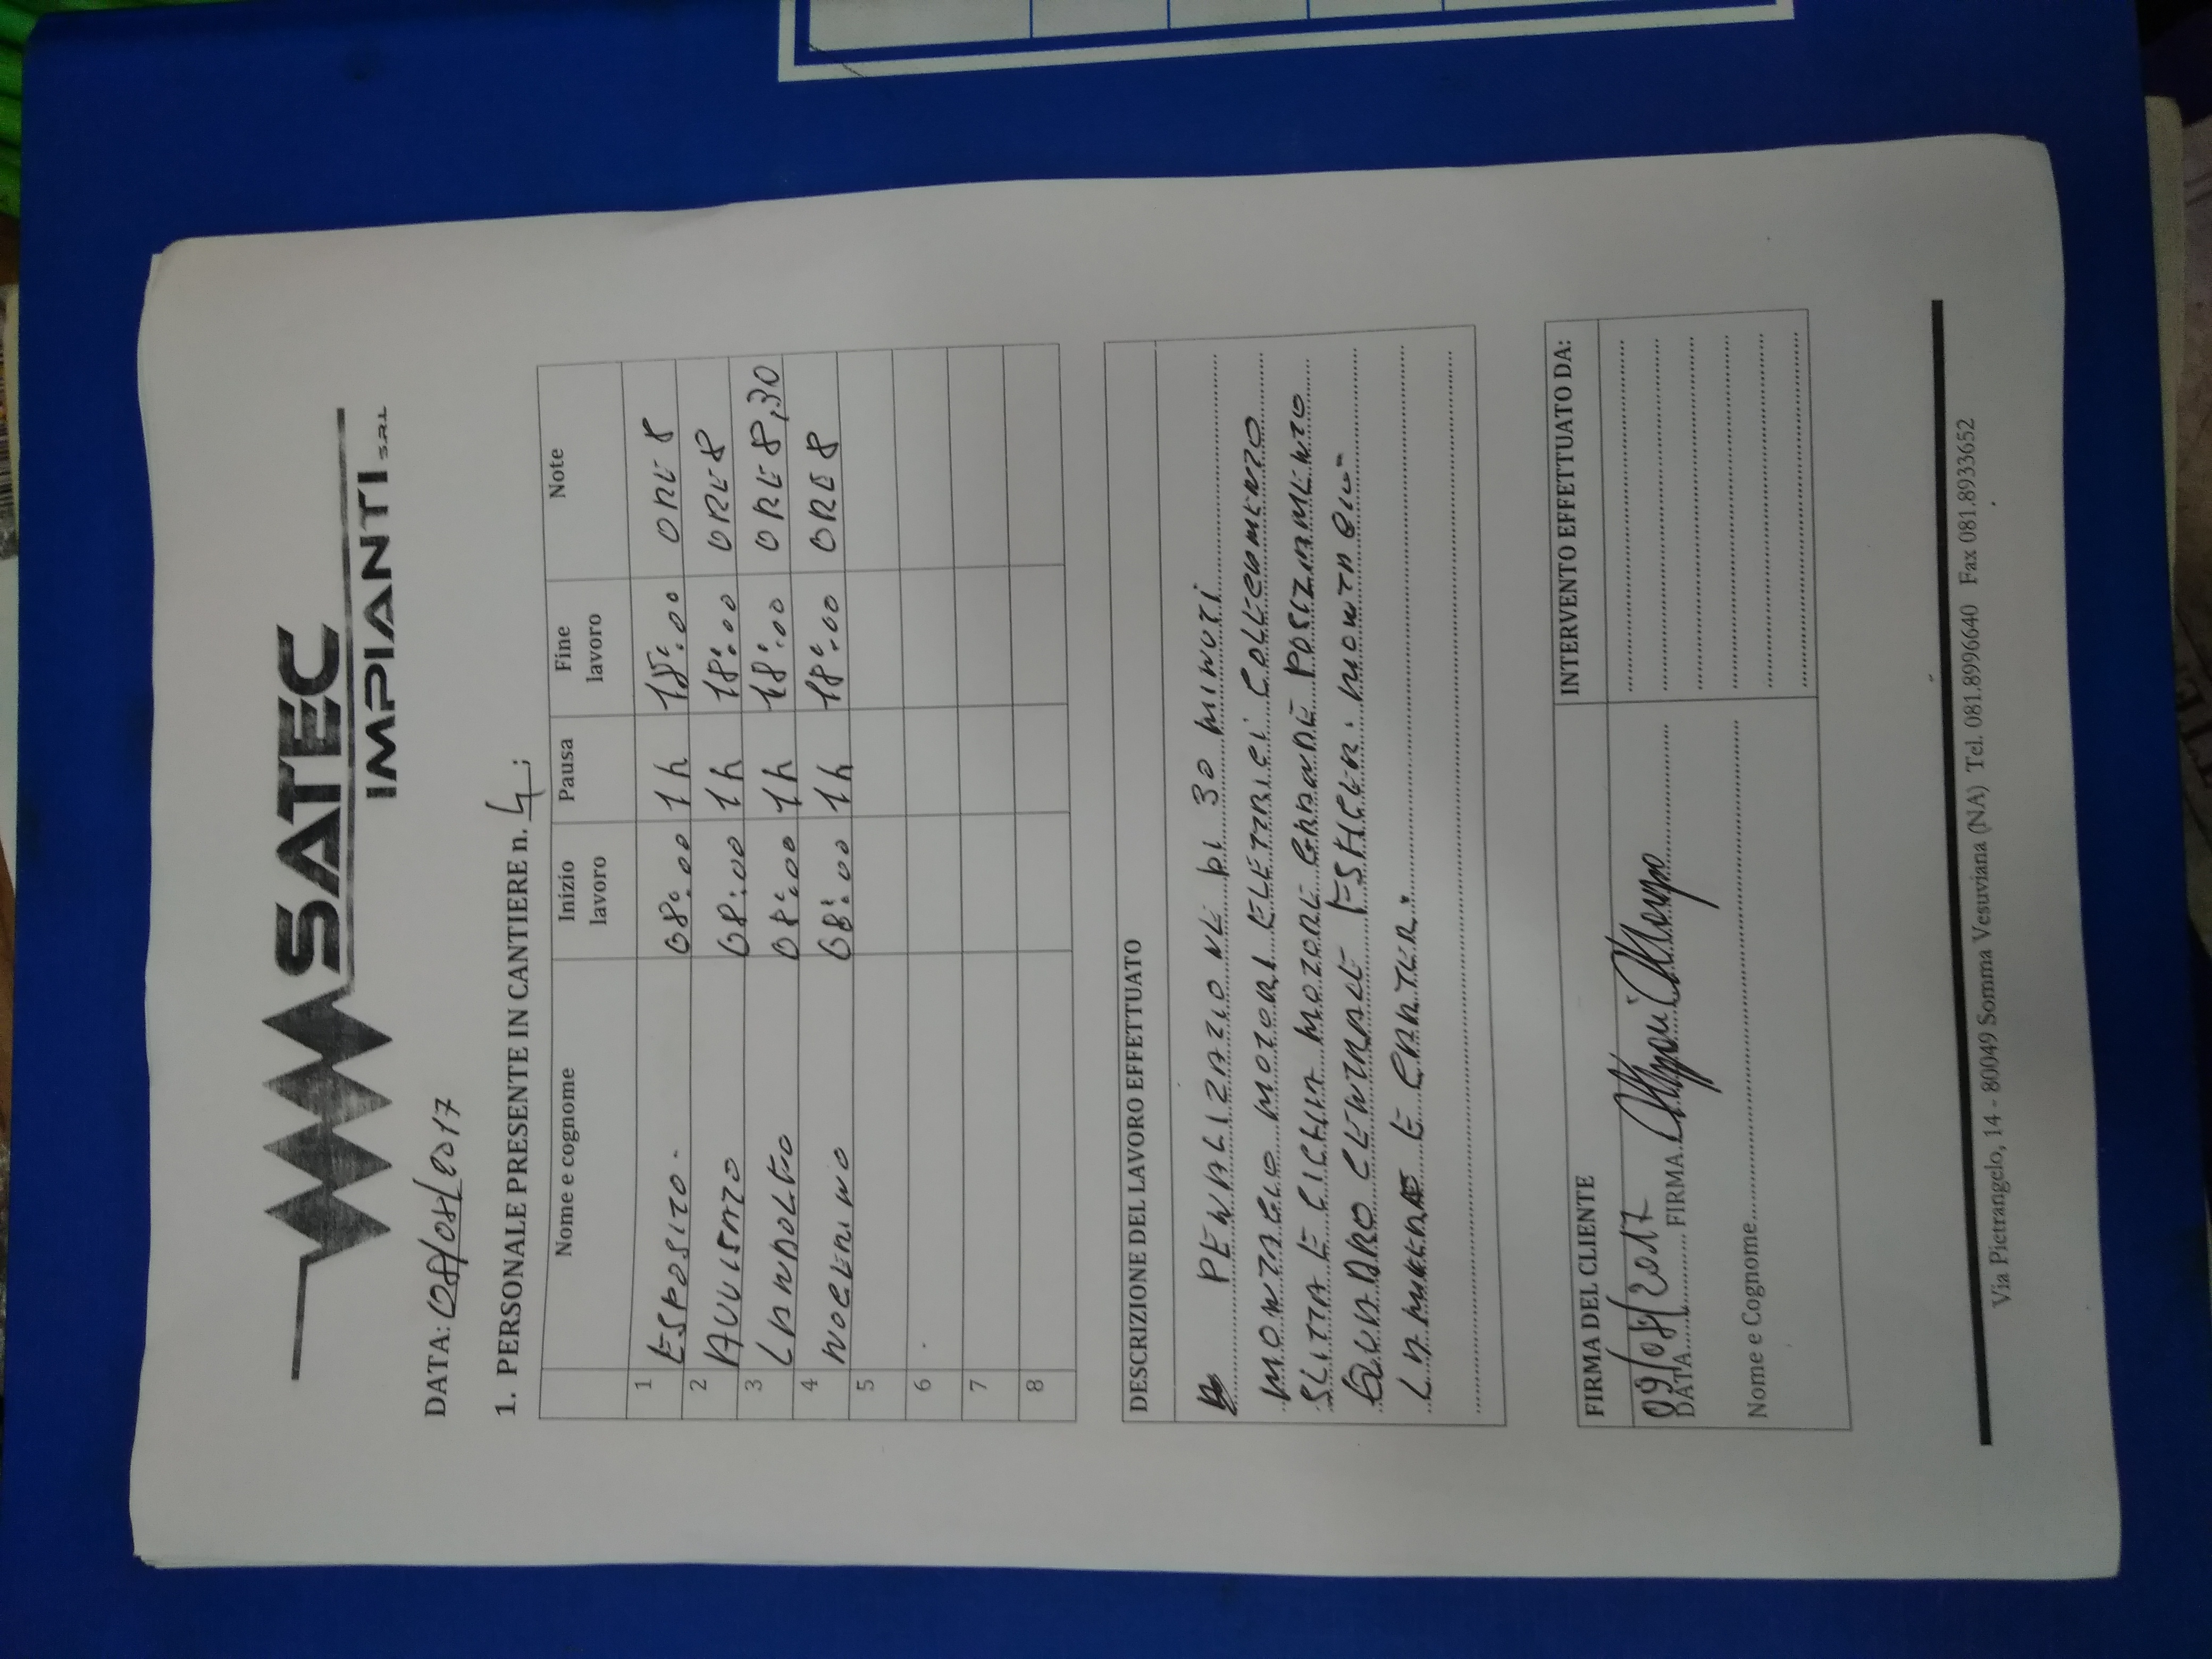 SATEC
IMPIANTI S.R.L.
DATA: 08/08/2017
1. PERSONALE PRESENTE IN CANTIERE n. 4;
Nome e cognome Inizio lavoro Pausa Fine lavoro Note
1 ESPOSITO. 08:00 1h 18:00 ORE 8
2 AUUISATO 08:00 1h 18:00 ORE 8
3 LANDOLFO 08:00 1h 18:00 ORE 8,30
4 NOCERINO 08:00 1h 18:00 ORE 8
5
6
7
8
DESCRIZIONE DEL LAVORO EFFETTUATO
PENALIZAZIONE DI 30 MINUTI
MONTAGIO MOTORI ELETTRICI COLLEGAMENTO
SLITTA E CICLIA MOTORE GRANDE POSIZIAMENTO
QUADRO CENTRALE ESHCER. MONTAGIO
E CARTER.
FIRMA DEL CLIENTE INTERVENTO EFFETTUATO DA:
09/08/2017
DATA FIRMA
Nome e Cognome
Via Pietrangelo, 14 - 80049 Somma Vesuviana (NA) Tel. 081.8996640 Fax 081.8933652